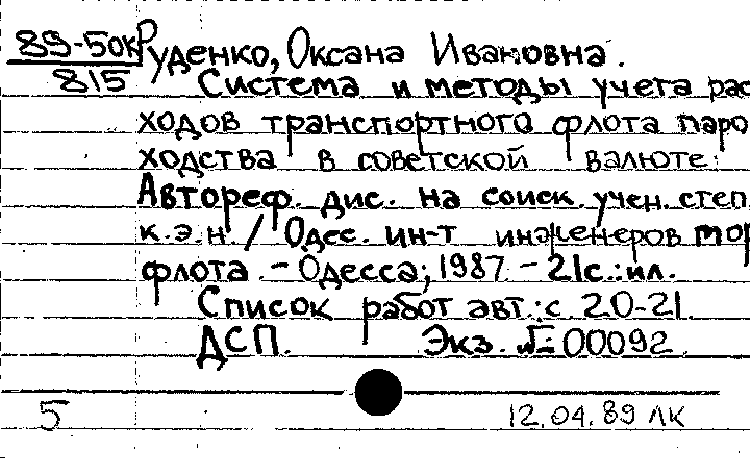 89-50к Руденко, Оксана Ивановна.
815 Система и методы учета рас
ходов транспортного флота паро
ходства в советской валюте:
Автореф. дис. на соиск. учен. степ.
к.э.н. / Одес. ин-т инженеров мор
флота. - Одесса, 1987 - 21с.: ил.
Список работ авт.: с. 20-21.
ДСП. Экз. № 00092.
5 12.04.89 ЛК